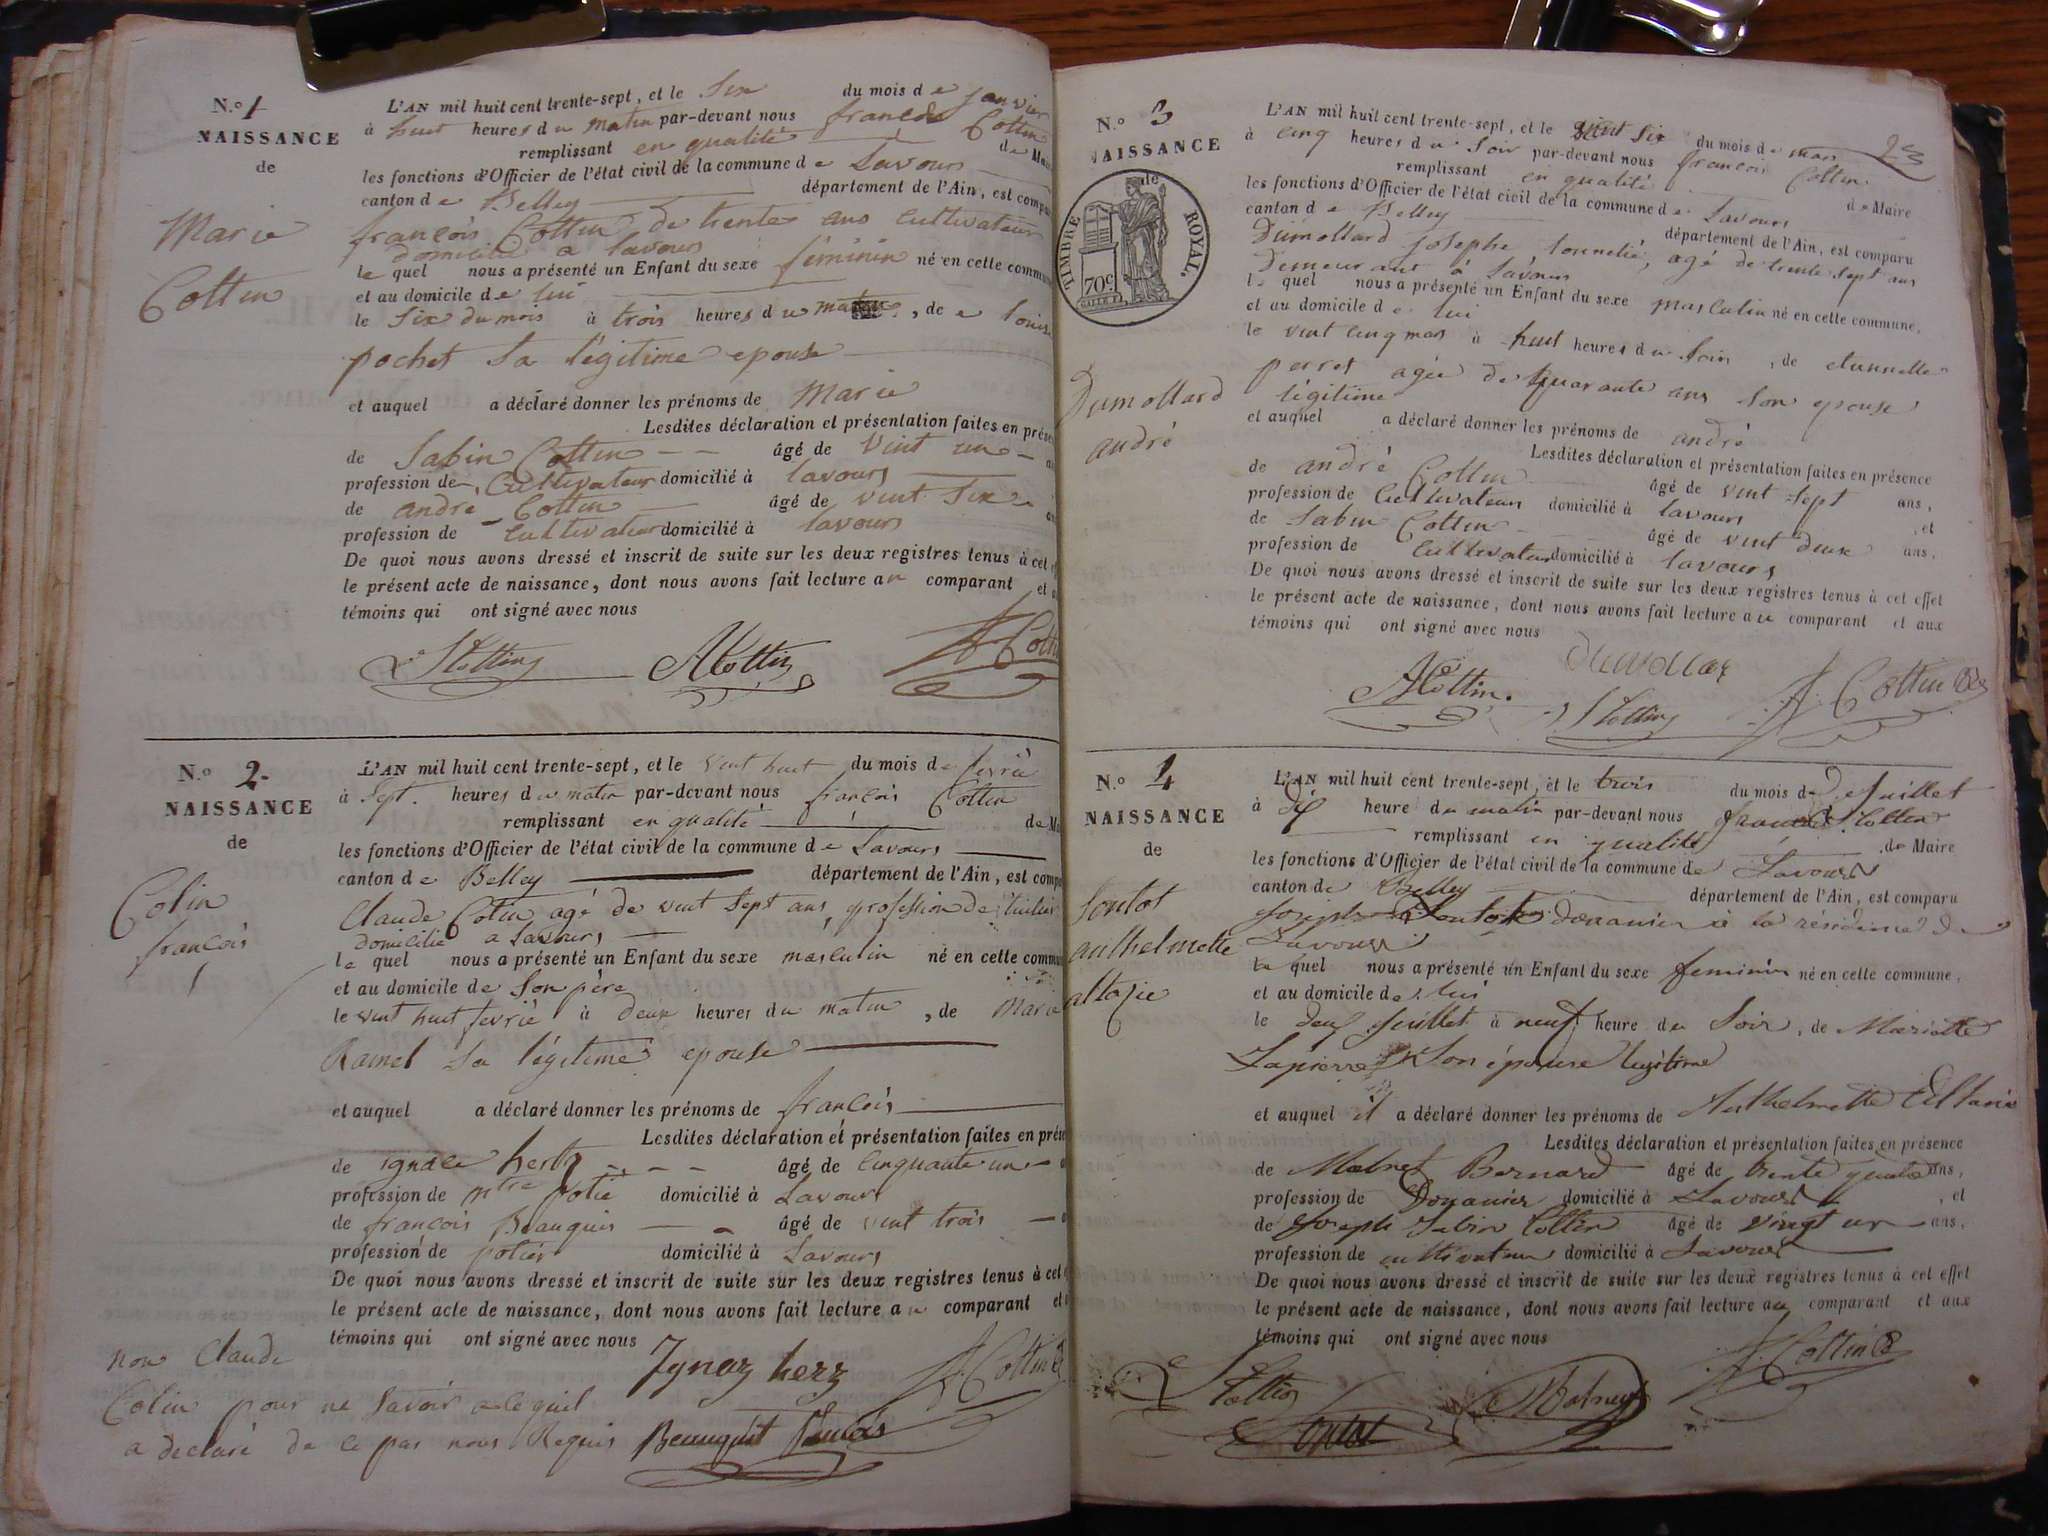 N.º 1
NAISSANCE
de
Marie
Cottin
L'AN mil huit cent trente-sept, et le Six du mois de janvier
à huit heures du matin par-devant nous françois Cottin
remplissant en qualité de Mai
les fonctions d'Officier de l'état civil de la commune de Lavours
canton de Belley département de l'Ain, est compa
françois Cottin de trente ans cultivateur
domicilié a lavours
le quel nous a présenté un Enfant du sexe féminin né en cette commune
et au domicile de lui
le Six du mois à trois heures du matin, de Louise
pochet Sa légitime epouse
et auquel a déclaré donner les prénoms de Marie
Lesdites déclaration et présentation faites en prése
de Sabin Cottin âgé de vint un
profession de Cultivateur domicilié à lavours
de andré Cottin âgé de vint Six
profession de Cultivateur domicilié à lavours
De quoi nous avons dressé et inscrit de suite sur les deux registres tenus à cet ef
le présent acte de naissance, dont nous avons fait lecture au comparant et a
témoins qui ont signé avec nous
SCottin ACottin f Cotti
N.º 2
NAISSANCE
de
Colin
françois
L'AN mil huit cent trente-sept, et le vint huit du mois de fevrié
à Sept heures du matin par-devant nous françois Cottin
remplissant en qualité de Ma
les fonctions d'Officier de l'état civil de la commune de Lavours
canton de Belley département de l'Ain, est compa
Claude Colin agé de vint Sept ans, profession de tuilier
domicilié a Lavours
le quel nous a présenté un Enfant du sexe masculin né en cette commu
et au domicile de Son père
le vint huit fevrié à deux heures du matin, de Marie
Ramel Sa légitime epouse
et auquel a déclaré donner les prénoms de françois
Lesdites déclaration et présentation faites en prése
de ignace hertz âgé de cinquante un
profession de mtre potié domicilié à Lavours
de françois Beauquis âgé de vint trois
profession de potier domicilié à Lavours
De quoi nous avons dressé et inscrit de suite sur les deux registres tenus à cet
le présent acte de naissance, dont nous avons fait lecture au comparant et
témoins qui ont signé avec nous
non Claude
Colin pour ne Savoir
a declaré de ce par nous Requis
Ignaz herz f Cottin
Beauquit
N.º 3
NAISSANCE
de
TIMBRE ROYAL.
70c
Dumollard
andré
L'AN mil huit cent trente-sept, et le vint Six du mois de mars
à cinq heures du Soir par-devant nous françois Cottin
remplissant en qualité de Maire
les fonctions d'Officier de l'état civil de la commune de Lavours
canton de Belley département de l'Ain, est comparu
Dumollard josephe tonnelié, agé de trente Sept ans
Demeurant à Lavours
le quel nous a présenté un Enfant du sexe masculin né en cette commune,
et au domicile de lui
le vint cinq mars à huit heures du Soir, de etiennette
perret agée de quarante ans Son epouse
légitime
et auquel a déclaré donner les prénoms de andré
Lesdites déclaration et présentation faites en présence
de andré Cottin âgé de vint Sept ans,
profession de Cultivateur domicilié à lavours, et
de Sabin Cottin âgé de vint deux ans,
profession de Cultivateur domicilié à lavours
De quoi nous avons dressé et inscrit de suite sur les deux registres tenus à cet effet
le présent acte de naissance, dont nous avons fait lecture au comparant et aux
témoins qui ont signé avec nous
ACottin SCottin f Cottin
N.º 4
NAISSANCE
de
Soutot
anthelmette
altazie
L'AN mil huit cent trente-sept, et le trois du mois de Juillet
à dix heure du matin par-devant nous françois Cottin
remplissant en qualité de Maire
les fonctions d'Officier de l'état civil de la commune de Lavours
canton de Belley département de l'Ain, est comparu
Joseph Soutot douanier à la résidence de
Lavours
le quel nous a présenté un Enfant du sexe feminin né en cette commune,
et au domicile de lui
le deux Juillet à neuf heure du Soir, de Mariette
Lapierre Son épouse legitime
et auquel il a déclaré donner les prénoms de Anthelmette Altazie
Lesdites déclaration et présentation faites en présence
de Bernard âgé de trente quatre ans,
profession de Douanier domicilié à Lavours, et
de Joseph Sabin Cottin âgé de vingt un ans,
profession de cultivateur domicilié à Lavours
De quoi nous avons dressé et inscrit de suite sur les deux registres tenus à cet effet
le présent acte de naissance, dont nous avons fait lecture au comparant et aux
témoins qui ont signé avec nous
SCottin f Cottin
Soutot